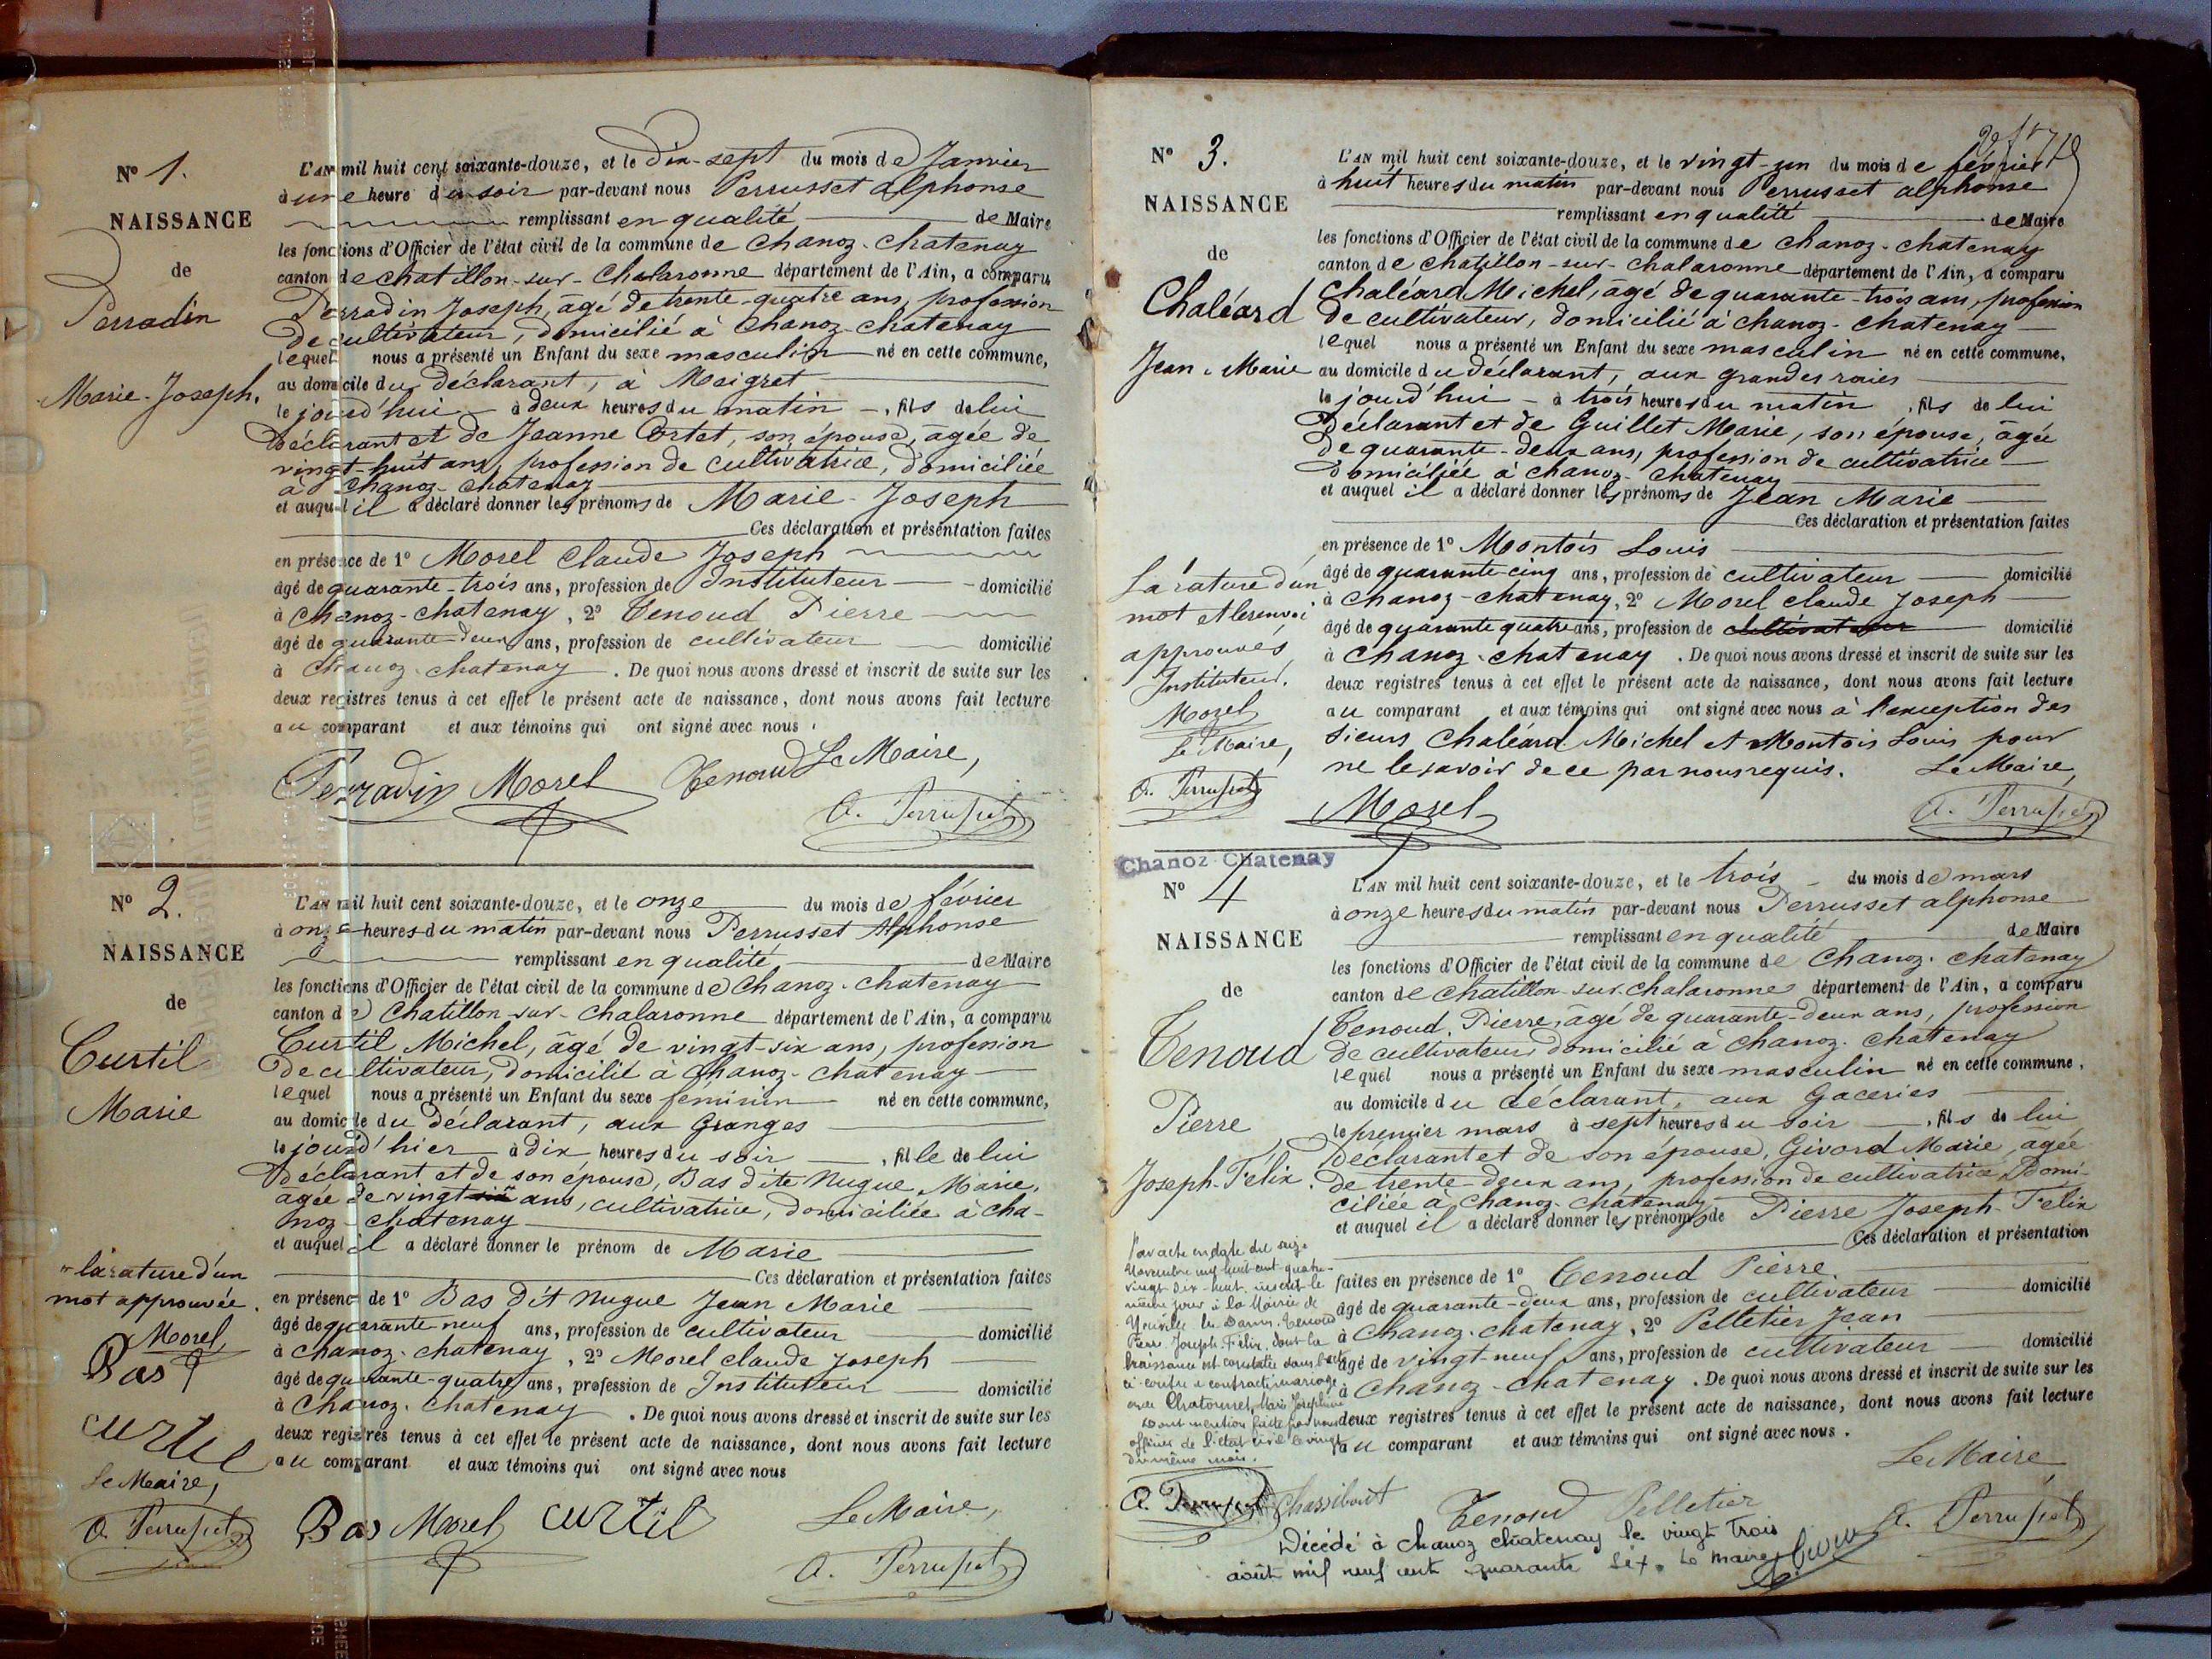 N° 1.
NAISSANCE
de
Perradin
Marie-Joseph.
L'AN mil huit cent soixante-douze, et le dix-sept du mois de Janvier
à une heure du soir par-devant nous Perrusset Alphonse
remplissant en qualité de Maire
les fonctions d'Officier de l'état civil de la commune de Chanoz-Chatenay
canton de Chatillon-sur-Chalaronne département de l'Ain, a comparu
Perradin Joseph, âgé de trente-quatre ans, profession
de cultivateur, domicilié à Chanoz-Chatenay
lequel nous a présenté un Enfant du sexe masculin né en cette commune,
au domicile du déclarant, à Maigret
le jourd'hui à deux heures du matin, fils de lui
Déclarant et de Jeanne Cortet, son épouse, âgée de
vingt-huit ans, profession de cultivatrice, domiciliée
à Chanoz-Chatenay
et auquel il a déclaré donner les prénoms de Marie-Joseph
Ces déclaration et présentation faites
en présence de 1° Morel Claude Joseph
âgé de quarante-trois ans, profession de Instituteur domicilié
à Chanoz-Chatenay, 2° Tenoud Pierre
âgé de quarante-deux ans, profession de cultivateur domicilié
à Chanoz-Chatenay. De quoi nous avons dressé et inscrit de suite sur les
deux registres tenus à cet effet le présent acte de naissance, dont nous avons fait lecture
au comparant et aux témoins qui ont signé avec nous.
Perradin Morel Tenoud Le Maire,
A. Perrusset
N° 2.
NAISSANCE
de
Curtil
Marie
L'AN mil huit cent soixante-douze, et le onze du mois de février
à onze heures du matin par-devant nous Perrusset Alphonse
remplissant en qualité de Maire
les fonctions d'Officier de l'état civil de la commune de Chanoz-Chatenay
canton de Chatillon-sur-Chalaronne département de l'Ain, a comparu
Curtil Michel, âgé de vingt-six ans, profession
de cultivateur, domicilié à Chanoz-Chatenay
lequel nous a présenté un Enfant du sexe feminin né en cette commune,
au domicile du déclarant, aux Granges
le jourd'hier à dix heures du soir, fille de lui
Déclarant et de son épouse, Bas dite Nugue Marie,
âgée de vingt six ans, cultivatrice, domiciliée à Cha-
noz-Chatenay
et auquel il a déclaré donner le prénom de Marie
Ces déclaration et présentation faites
en présence de 1° Bas dit Nugue Jean Marie
âgé de quarante-neuf ans, profession de cultivateur domicilié
à Chanoz-Chatenay, 2° Morel Claude Joseph
âgé de quarante-quatre ans, profession de Instituteur domicilié
à Chanoz-Chatenay. De quoi nous avons dressé et inscrit de suite sur les
deux registres tenus à cet effet le présent acte de naissance, dont nous avons fait lecture
au comparant et aux témoins qui ont signé avec nous
la rature d'un
mot approuvée.
Morel
Bas
curtil
Le Maire,
A. Perrusset
Bas Morel curtil Le Maire,
A. Perrusset
N° 3.
NAISSANCE
de
Chaléard
Jean-Marie
L'AN mil huit cent soixante-douze, et le vingt-un du mois de février
à huit heures du matin par-devant nous Perrusset Alphonse
remplissant en qualité de Maire
les fonctions d'Officier de l'état civil de la commune de Chanoz-Chatenay
canton de Chatillon-sur-Chalaronne département de l'Ain, a comparu
Chaléard Michel, agé de quarante-trois ans, profession
de cultivateur, domicilié à Chanoz-Chatenay
lequel nous a présenté un Enfant du sexe masculin né en cette commune,
au domicile du déclarant, aux grandes raies
le jourd'hui à trois heures du matin, fils de lui
Déclarant et de Guillet Marie, son épouse, âgée
de quarante-deux ans, profession de cultivatrice
domiciliée à Chanoz-Chatenay
et auquel il a déclaré donner les prénoms de Jean Marie
Ces déclaration et présentation faites
en présence de 1° Montois Louis
âgé de quarante-cinq ans, profession de cultivateur domicilié
à Chanoz-Chatenay, 2° Morel Claude Joseph
âgé de quarante quatre ans, profession de cultivateur domicilié
à Chanoz-Chatenay. De quoi nous avons dressé et inscrit de suite sur les
deux registres tenus à cet effet le présent acte de naissance, dont nous avons fait lecture
au comparant et aux témoins qui ont signé avec nous à l'exception des
sieurs Chaléard Michel et Montois Louis pour
ne le savoir de ce par nous requis. Le Maire,
Morel A. Perrusset
La rature d'un
mot et le renvoi
approuvés
Instituteur.
Morel
Le Maire,
A. Perrusset
Chanoz-Chatenay
N° 4
NAISSANCE
de
Tenoud
Pierre
Joseph-Félix.
L'AN mil huit cent soixante-douze, et le trois du mois de mars
à onze heures du matin par-devant nous Perrusset Alphonse
remplissant en qualité de Maire
les fonctions d'Officier de l'état civil de la commune de Chanoz-Chatenay
canton de Chatillon-sur-Chalaronne département de l'Ain, a comparu
Tenoud Pierre, agé de quarante-deux ans, profession
de cultivateur, domicilié à Chanoz-Chatenay
lequel nous a présenté un Enfant du sexe masculin né en cette commune,
au domicile du déclarant, aux Gaceries
le premier mars à sept heures du soir, fils de lui
Déclarant et de son épouse, Givord Marie, agée
de trente-deux ans, profession de cultivatrice, domi-
ciliée à Chanoz-Chatenay
et auquel il a déclaré donner les prénoms de Pierre Joseph-Félix
Ces déclaration et présentation
faites en présence de 1° Tenoud Pierre
âgé de quarante-deux ans, profession de cultivateur domicilié
à Chanoz-Chatenay, 2° Pelletier Jean
âgé de vingt-neuf ans, profession de cultivateur domicilié
à Chanoz-Chatenay. De quoi nous avons dressé et inscrit de suite sur les
deux registres tenus à cet effet le présent acte de naissance, dont nous avons fait lecture
au comparant et aux témoins qui ont signé avec nous.
Le Maire
Tenoud Pelletier A. Perrusset
Par acte en date du seize
Novembre mil huit cent quatre-
vingt-dix-huit, inscrit le
même jour à la Mairie de
Neuville les Dames, Tenoud
Pierre Joseph-Félix, dont la
naissance est constatée dans l'acte
ci-contre a contracté mariage
avec Chatounet, Marie Joséphine
Dont mention faite par nous
officier de l'état civil le vingt
du même mois.
A. Perrusset
Décédé à Chanoz Chatenay le vingt trois
août mil neuf cent quarante six. Le maire,